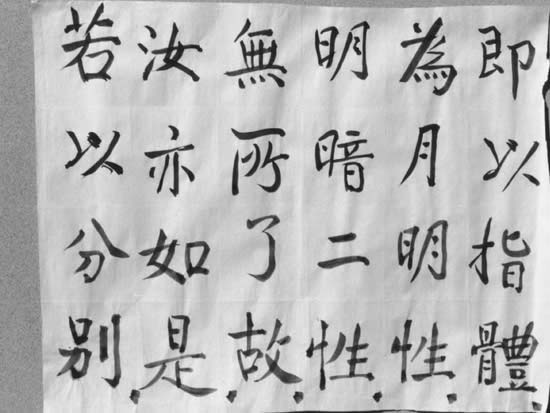 即以指體
為月明性
明暗二性
無所了故
汝亦如是
若以分別